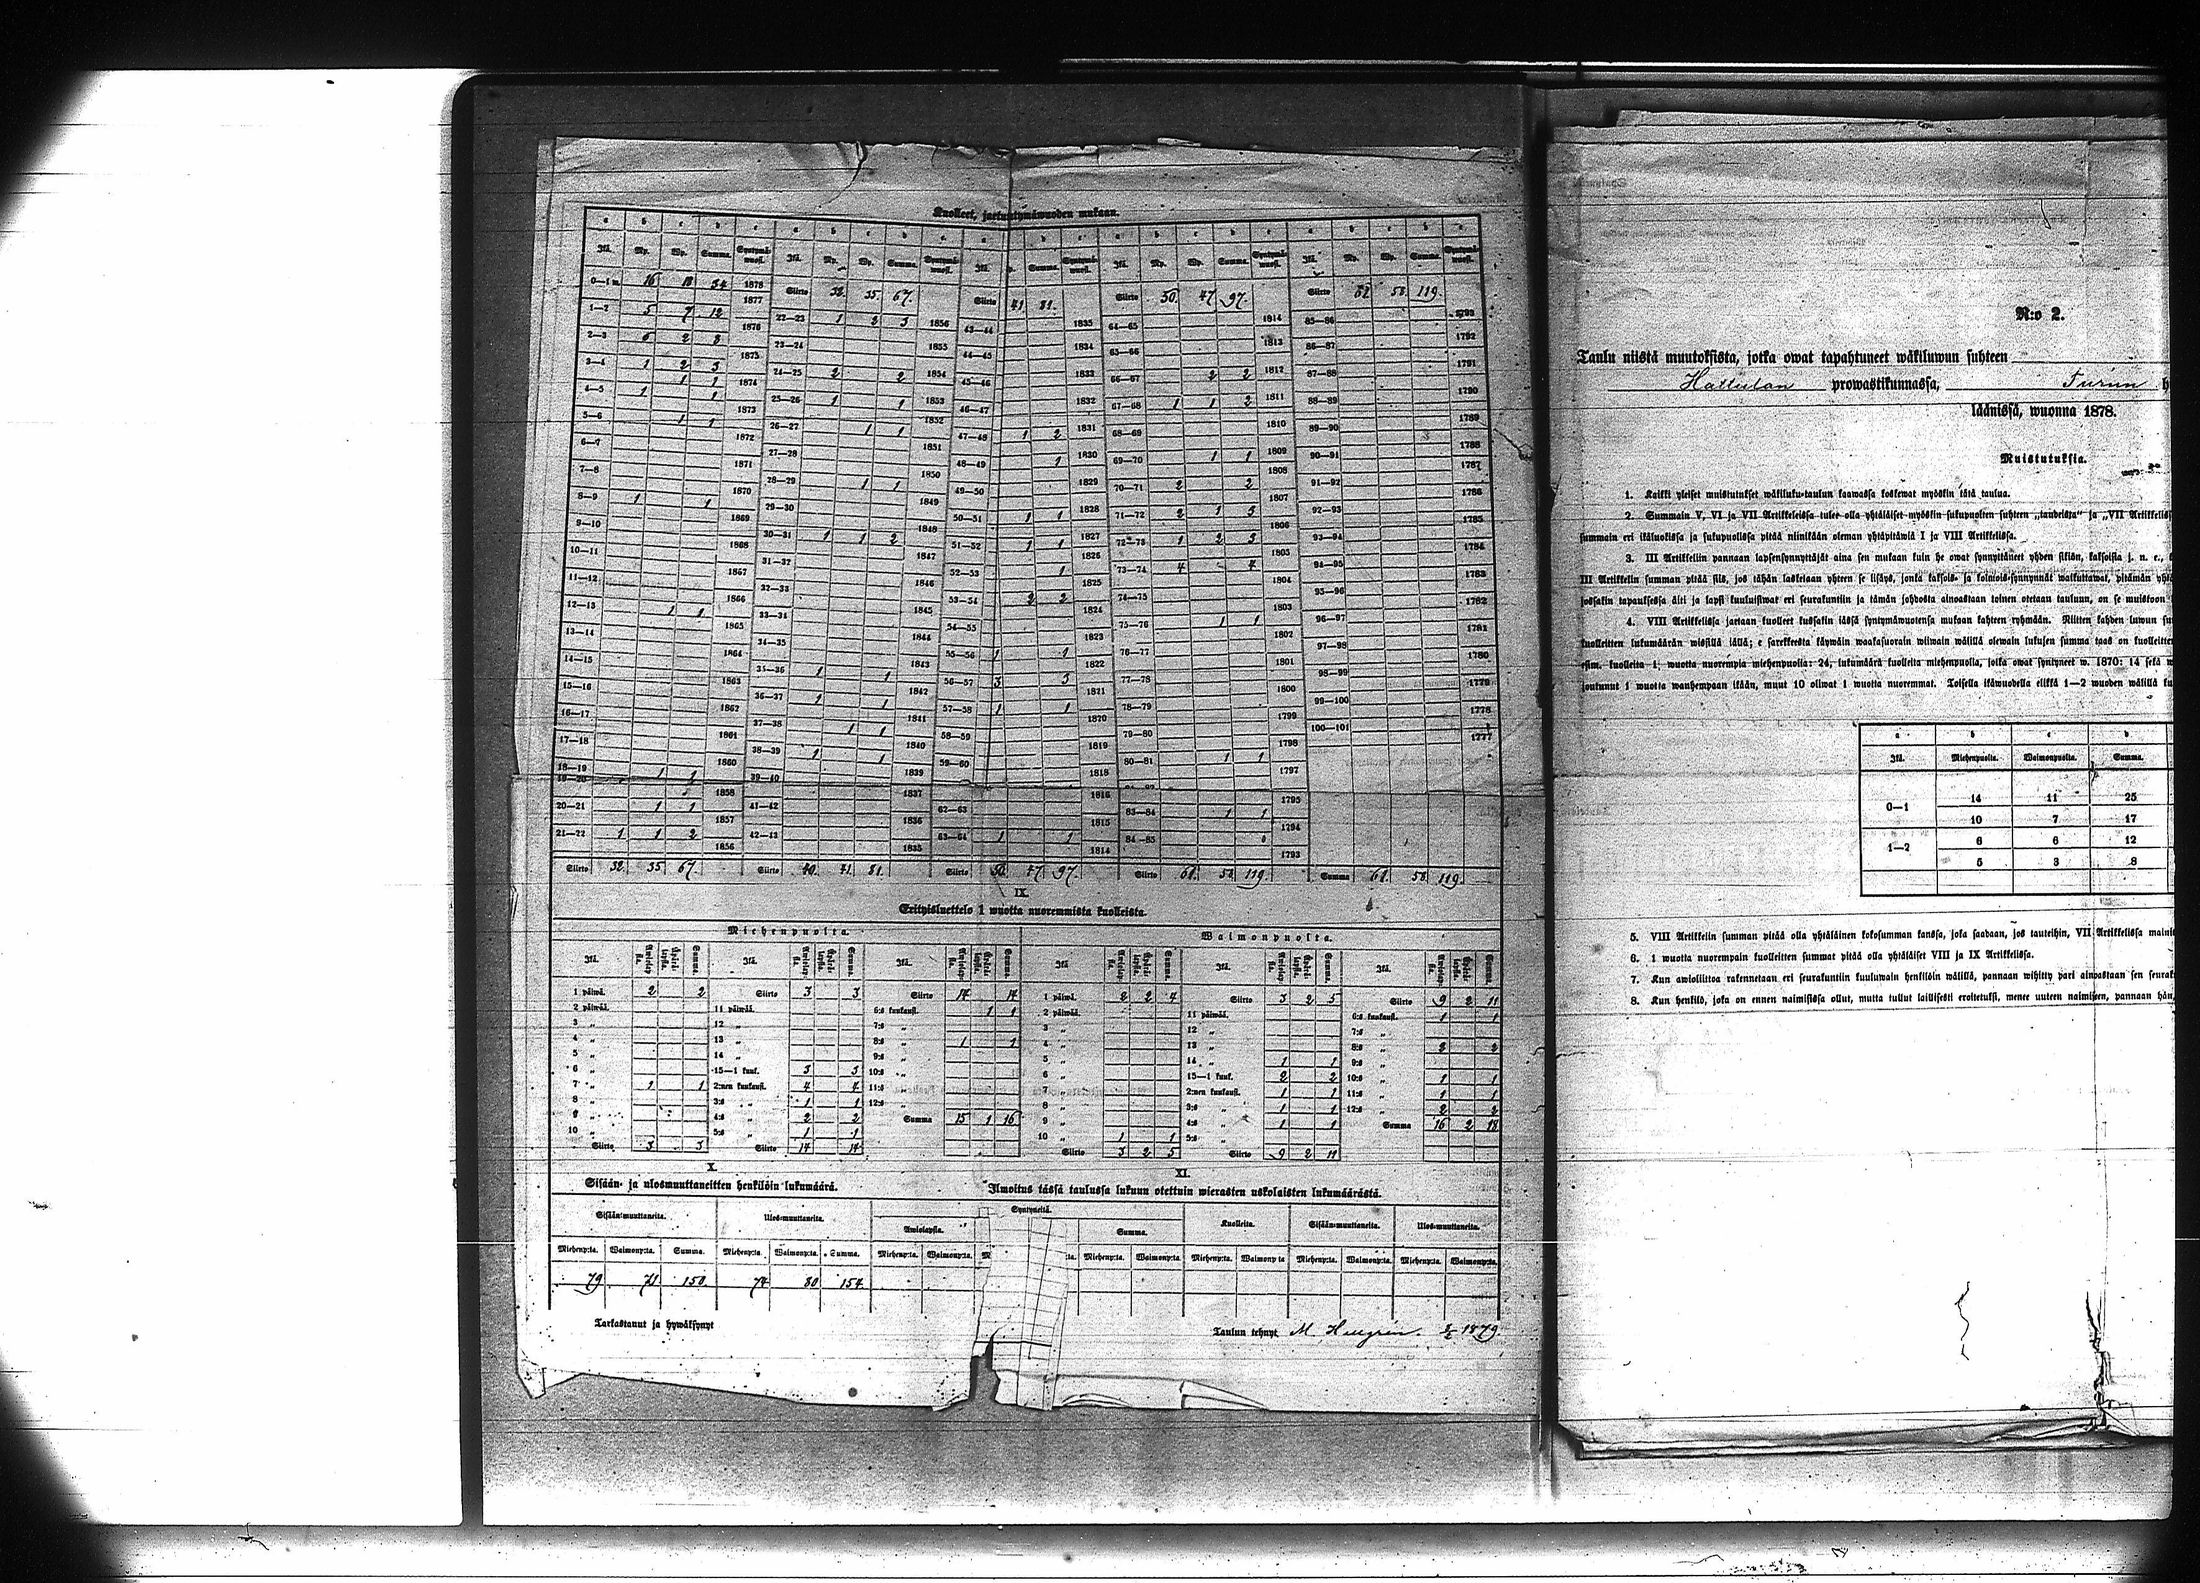 Kuolleet, jaetut
0—1 w. 16 18 34 1878
1877
1—2 5 7 12
1876
2—3
1875
3—4 1 2 3
1874
4—5 1 1
1873
5—6 1 1
1872
6—7
1871
7—8
1870
8—9 1 1
1869
9—10
1868
10—11
1867
11—12
1866
12—13 1 1
1865
13—14
1864
14—15
1863
15—16
1862
16—17
1861
17—18
1860
18—19
1858
20—21 1 1
1857
21—22 1 1 2
1856
Siirto 32. 35 67.
Siirto 32. 35. 67.
22—23 1 2 3 1856
23—24 1855
24—25 2 2 1854
25—26 1 1 1853
26—27 1 1 1852
27—28 1851
28—29 1 1 1850
29—30 1849
30—31 1 1 2 1848
31—32 1847
32—33 1846
1845
34—35 1844
35—36 1 1 1843
36—37 1 1 1842
37—38 1 1 1841
38—39 1 1 1840
39—40 1839
41—42 1837
1836
1835
Siirto 40. 41. 81.
Siirto 41 81.
43—44 1835
44—45 1834
45—46 1833
46—47 1832
47—48 1 2 1831
48—49 1 1830
49—50 1829
50—51 1 1 1828
51—52 1 1 1827
1826
52—53 1 1825
53—54 2 2 1824
54—55 1823
55—56 1 1 1822
56—57 3 3 1821
57—58 1 1
58—59 1819
59—60 1818
62—63 1816
63—64 1 1 1815
1814
Siirto 50. 47 97.
Siirto 50. 47 97.
64—65 1814
65—66 1813
66—67 2 2 1812
67—68 1 1 2 1811
68—69 1810
69—70 1 1 1809
70—71 2 2 1808
71—72 2 1 3 1807
72—73 1 2 3 1806
73—74 4 4 1805
74—75 1804
75—76 1 1 1803
76—77 1802
77—78 1801
78—79 1800
79—80 1799
80—81 1 1 1798
1797
83—84 1 1 1795
84—85 1794
1793
Siirto 61. 58 119.
Siirto 61 58 119.
85—86 1793
86—87 1792
87—88 1791
88—89 1790
89—90 1789
90—91 1788
91—92 1787
92—93 1786
93—94 1785
94—95 1784
95—96 1783
96—97 1782
97—98 1781
98—99 1780
99—100 1779
100—101 1778
1777
Summa 61. 58 119.
IX.
Erityisluettelo 1 wuotta nuoremmista kuolleista.
Miehenpuolta. Waimonpuolta.
1 päiwä. 2 2
2 päiwää.
3 „
4 „
5 „
6 „
7 „ 1 1
8 „
9 „
10 „
Siirto 3 3
Siirto 3 3
11 päiwää.
12 „
13 „
14 „
15—1 kuuk. 3 3
2:nen kuukausi. 4 4
3:s „ 1 1
4:s „ 2 2
5:s „ 1 1
Siirto 14 14
Siirto 14 14
6:s kuukausi. 1 1
7:s „
8:s „ 1 1
9:s „
10:s „
11:s „
12:s „
Summa 15 1 16
1 päiwä. 2 2 4
2 päiwää.
3 „
4 „
5 „
6 „
7 „
8 „
9 „
10 „ 1 1
Siirto 3 2 5
Siirto 3 2 5
11 päiwää.
12 „
13 „
14 „ 1 1
15—1 kuuk. 2 2
2:nen kuukausi. 1 1
3:s „ 1 1
4:s „ 1 1
5:s „
Siirto 9 2 11
Siirto 9 2 11
6:s kuukausi. 1 1
7:s „
8:s „ 2 2
9:s „
10:s „ 1 1
11:s „ 1 1
12:s „ 2 2
Summa 16 2 18
X. XI.
Sisään- ja ulosmuuttaneitten henkilöin lukumäärä. Ilmoitus tässä taulussa lukuun otettuin wierasten uskolaisten lukumäärästä.
Sisään-muuttaneita. Ulos-muuttaneita. Syntyneitä. Kuolleita. Sisään-muuttaneita. Ulos-muuttaneita.
Awiolapsia. Summa.
Miehenp:ta. Waimonp:ta. Summa. Miehenp:ta. Waimonp:ta. Summa. Miehenp:ta. Waimonp:ta. Miehenp:ta. Waimonp:ta Miehenp:ta. Waimonp:ta Miehenp:ta. Waimonp:ta. Miehenp:ta. Waimonp:ta.
79 71 150. 74 80 154.
Tarkastanut ja hywäksynyt Taulun tehnyt M. 1879.
N:o 2.
Taulu niistä muutoksista, jotka owat tapahtuneet wäkiluwun suhteen
Hattulan prowastikunnassa, Turun h
läänissä, wuonna 1878.
Muistutuksia.
1. Kaikki yleiset muistutukset wäkiluku-taulun kaawassa koskewat myöskin tätä taulua.
2. Summain V, VI ja VII Artikkeleissa tulee olla yhtäläiset myöskin sukupuolten suhteen „taudeista" ja „VII Artikkelis
summain eri ikäluokissa ja sukupuolissa pitää niinikään oleman yhtäpitäwiä I ja VIII Artikkelissa.
3. III Artikkeliin pannaan lapsensynnyttäjät aina sen mukaan kuin he owat synnyttäneet yhden sikiön, kaksoisia j. n. e.,
III Artikkelin summan pitää siis, jos tähän lasketaan yhteen se lisäys, jonka kaksois- ja kolmois-synnynnät waikuttawat, pitämän yht
jossakin tapauksessa äiti ja lapsi kuuluisiwat eri seurakuntiin ja tämän johdosta ainoastaan toinen otetaan tauluun, on se muistoon
4. VIII Artikkelissa jaetaan kuolleet kussakin iässä syntymäwuotensa mukaan kahteen ryhmään. Niitten kahden luwun su
kuolleitten lukumäärän wissillä iällä; e sarekkeesta käywäin waakasuorain wiiwain wälillä olewain lukujen summa taas on kuolleitten
esim. kuolleita 1; wuotta nuorempia miehenpuolia: 24, lukumäärä kuolleita miehenpuolia, jotka owat syntyneet w. 1870: 14 sekä w
joutunut 1 wuotta wanhempaan ikään, muut 10 oliwat 1 wuotta nuoremmat. Toisella ikäwuodella elikkä 1—2 wuoden wälillä ku
a b c d
Ikä. Miehenpuolia. Waimonpuolia. Summa.
0—1 14 11 25
10 7 17
1—2 6 6 12
5 3 8
5. VIII Artikkelin summan pitää olla yhtäläinen kokosumman kanssa, joka saadaan, jos tauteihin, VII Artikkelissa mainit
6. 1 wuotta nuorempain kuolleitten summat pitää olla yhtäläiset VIII ja IX Artikkelissa.
7. Kun awioliittoa rakennetaan eri seurakuntiin kuuluwain henkilöin wälillä, pannaan wihitty pari ainoastaan sen seurak
8. Kun henkilö, joka on ennen naimisissa ollut, mutta tullut laillisesti eroitetuksi, menee uuteen naimiseen, pannaan hän,